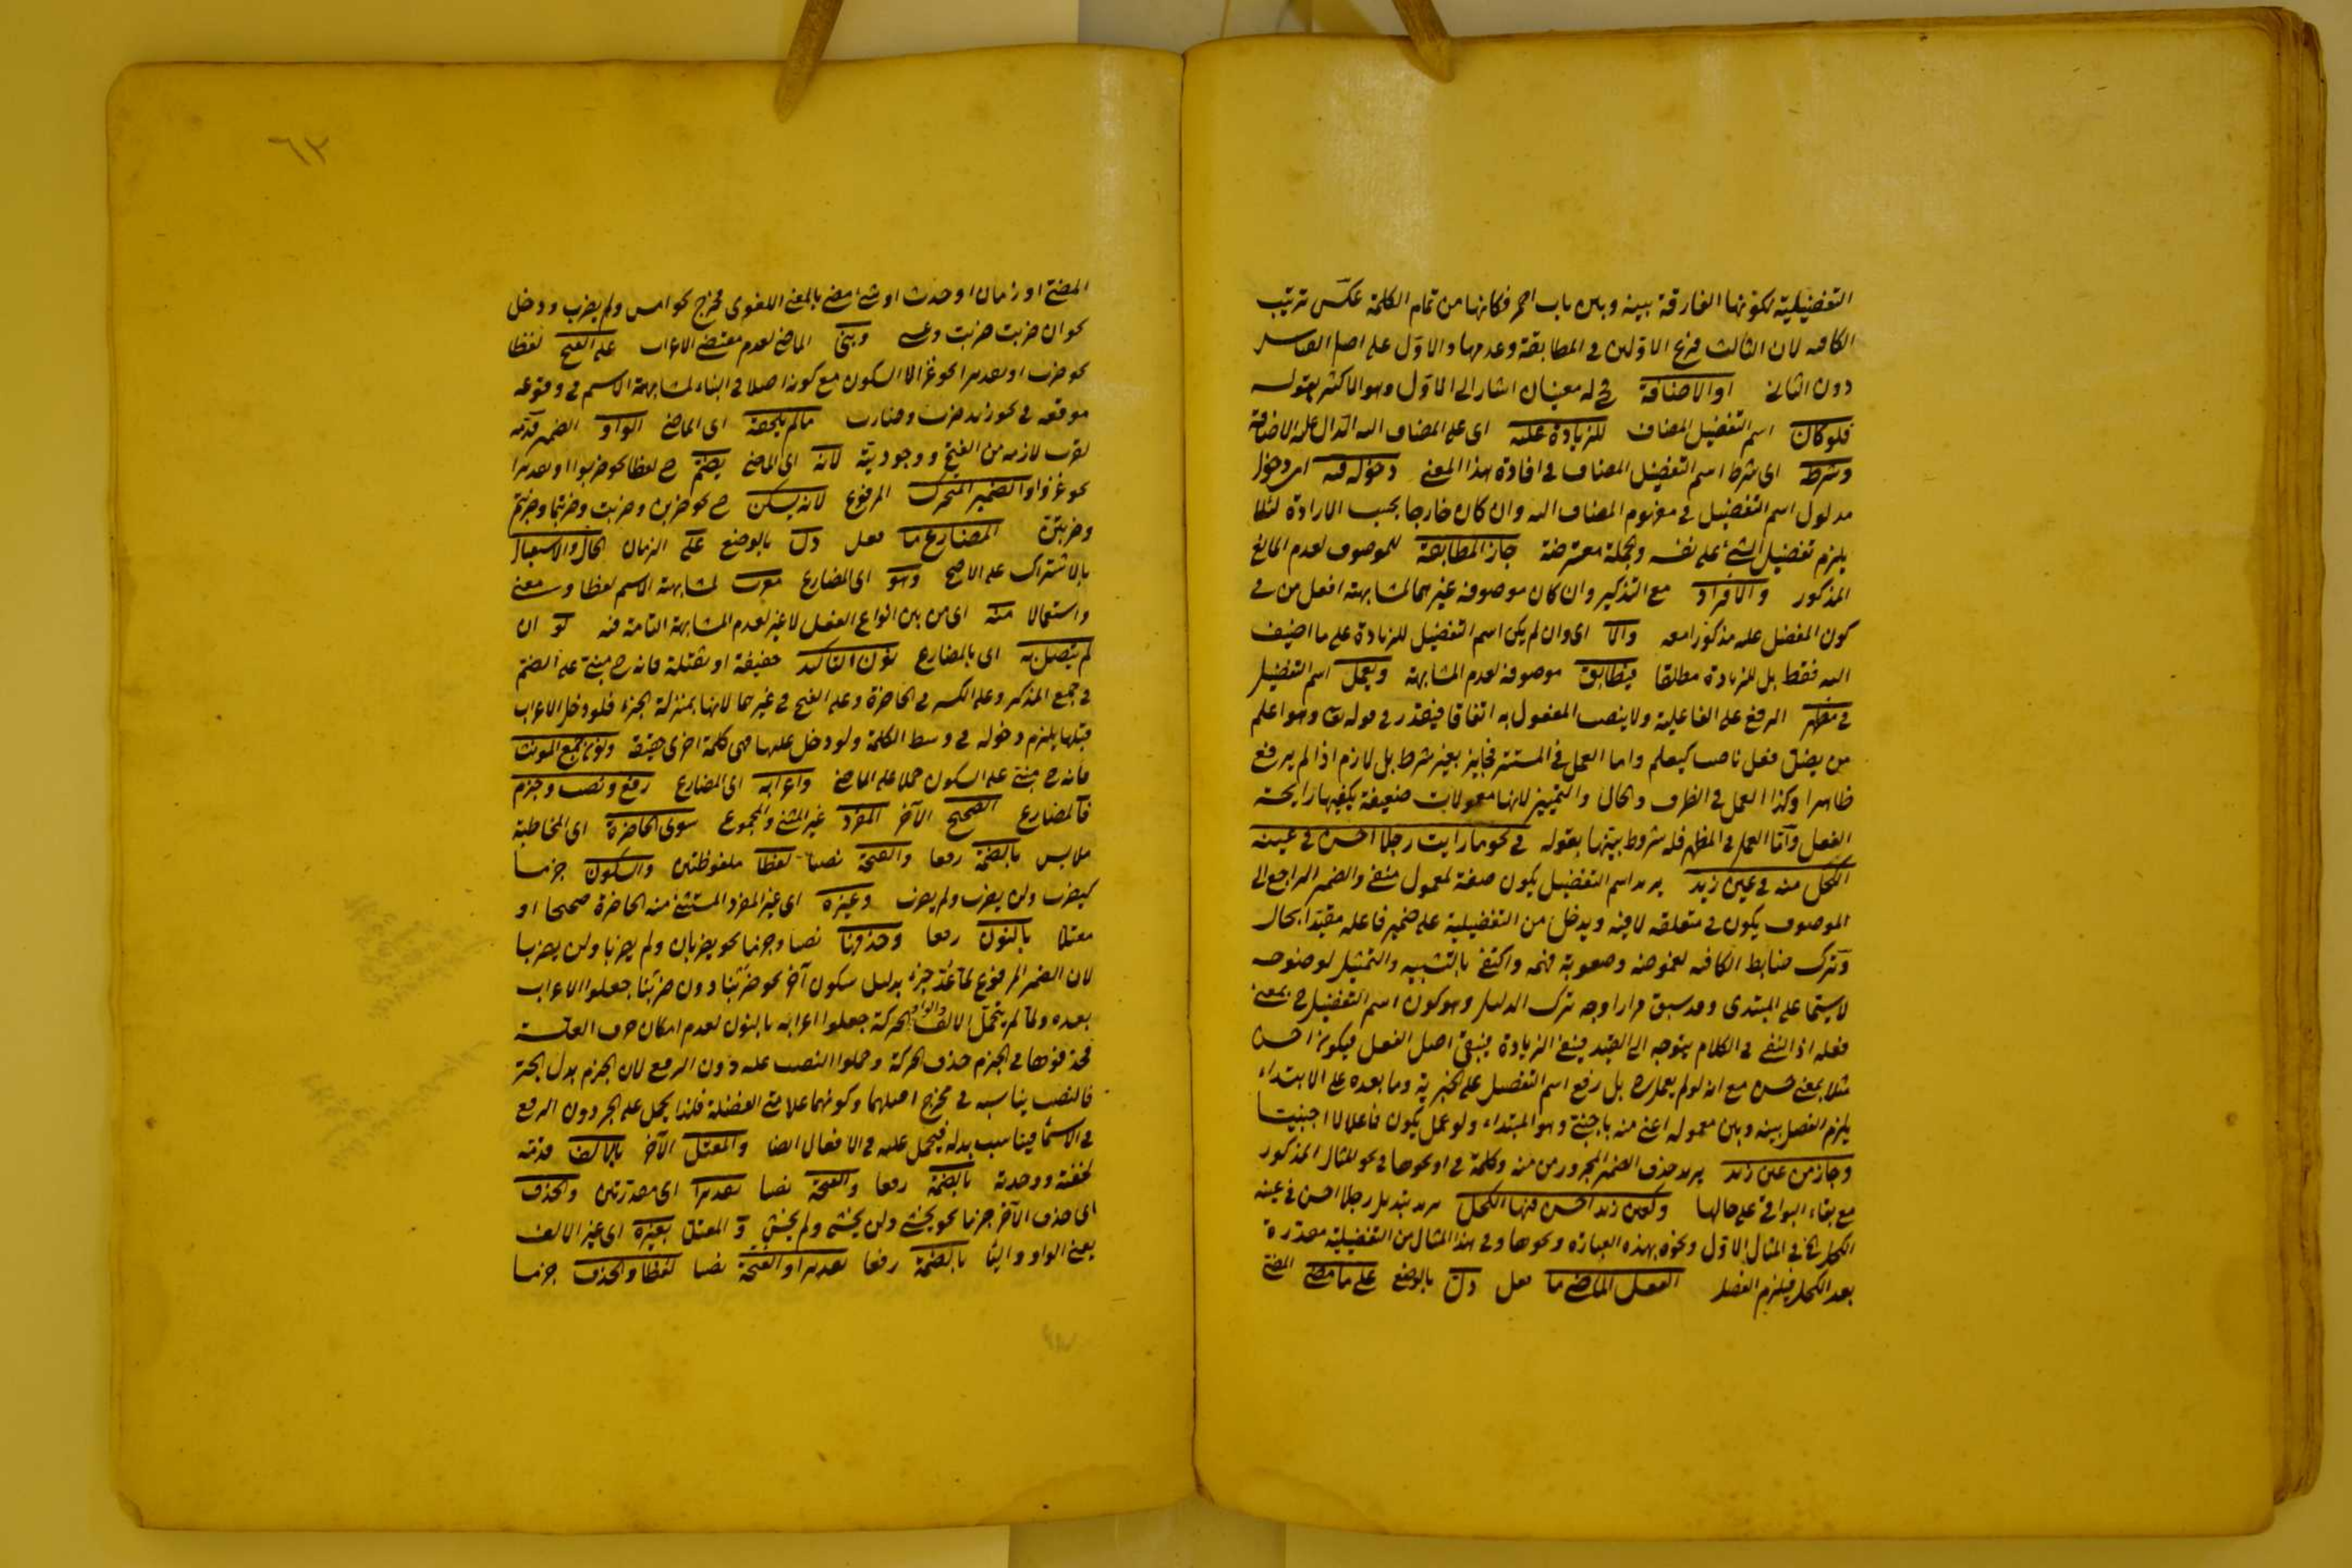 التفضيلية لكونها الفارقة بينه وبين باب احمر فكانها من تمام الكلمة عكس ترتيب
الكافيه لان الثالث فرع الاولين في المطابقة وعدمها والاول على اصل القياس
دون الثاني او الاضافة فح له معنيان اشار الى الاول وهو الاكثر بقوله
فلو كان اسم التفضيل المضاف للزيادة عليه اى على المضاف اليه الدال عليه الاضافة
وشرطه اى شرط اسم التفضيل المضاف في افادة هذا المعنى دخوله فيه اى دخول
مدلول اسم التفضيل في مفهوم المضاف اليه وان كان خارجا بحسب الارادة لئلا
يلزم تفضيل الشئ على نفسه والجملة معترضة جاز المطابقة للموصوف لعدم المانع
المذكور والافراد مع التذكير وان كان موصوفه غيرهما لمشابهته افعل من في
كون المفضل عليه مذكورا معه والا اى وان لم يكن اسم التفضيل للزيادة على ما اضيف
اليه فقط بل للزيادة مطلقا فيطابق موصوفه لعدم المشابهة ويعمل اسم التفضيل
في مظهر الرفع على الفاعلية ولا ينصب المفعول به اتفاقا فيقدر في قوله تع وهو اعلم
من يضل فعل ناصب كيعلم واما العمل في المستتر فجايز بغير شرط بل لازم اذا لم يرفع
ظاهرا وكذا العمل في الظرف والحال والتمييز لانها معمولات ضعيفة يكفيها رايحة
الفعل واما العمل في المظهر فله شروط بينها بقوله في نحو ما رايت رجلا احسن في عينه
الكحل منه في عين زيد يريد اسم التفضيل يكون صفة لمعمول منفى والضمير الراجع الى
الموصوف يكون في متعلقه لا فيه ويدخل من التفضيلية على ضمير فاعله مقيدا بحال
وترك ضابط الكافيه لغموضه وصعوبة فهمه واكتفى بالتشبيه والتمثيل لوضوحه
لا سيما على المبتدى وقد سبق مرارا وجه ترك الدليل وهو كون اسم التفضيل ح بمعنى
فعله اذ النفى في الكلام يتوجه الى القيد فينفى الزيادة فيبقى اصل الفعل فيكون احسن
مثلا بمعنى حسن مع انه لو لم يعمل ح بل رفع اسم التفضيل على الخبرية وما بعده على الابتداء
يلزم الفصل بينه وبين معموله اعنى منه باجنبى وهو المبتداء ولو عمل يكون فاعلا لا اجنبيا
وجاز من عين زيد يريد حذف الضمير المجرور من منه وكلمة في او نحوها في نحو المثال المذكور
مع بقاء البواقى على حالها وكعين زيد احسن فيها الكحل يريد تبديل رجلا احسن في عينه
الكحل الخ في المثال الاول ونحوه بهذه العبارة ونحوها وفي هذا المثال من التفضيلية مقدرة
بعد الكحل فيلزم الفصل الفعل الماضى ما فعل دل بالوضع على ما مضى المضى
٦٢
المضى او زمان او حدث او شئ مضى بالمعنى اللغوى فخرج نحو امس ولم يضرب ودخل
نحو ان ضربت ضربت وعسى وبنى الماضى لعدم مقتضى الاعراب على الفتح لفظا
نحو ضرب او تقديرا نحو غزا لا السكون مع كونه اصلا في البناء لمشابهة الاسم في وقوعه
موقعه في نحو زيد ضرب وضارب ما لم يلحقه اى الماضى الواو الضمير قدمه
لقرب لازمه من الفتح ووجوديته لانه اى الماضى يضم ح لفظا نحو ضربوا او تقديرا
نحو غزوا والضمير المتحرك المرفوع لانه يسكن ح نحو ضربن وضربت وضربتما وضربتم
وضربتن المضارع ما فعل دل بالوضع على الزمان الحال والاستقبال
بالاشتراك على الاصح وهو اى المضارع معرب لمشابهته الاسم لفظا ومعنى
واستعمالا منه اى من بين انواع الفعل لا غير لعدم المشابهة التامة فيه لو ان
لم يتصل به اى بالمضارع نون التاكيد خفيفة او ثقيلة فانه ح مبنى على الضم
في جمع المذكر وعلى الكسر في الحاضرة وعلى الفتح في غيرهما لانها بمنزلة الجزء فلو دخل الاعراب
قبلها يلزم دخوله في وسط الكلمة ولو دخل عليها فهى كلمة اخرى حقيقة ونون جمع المونث
فانه ح مبنى على السكون حملا على الماضى واعرابه اى المضارع رفع ونصب وجزم
فالمضارع الصحيح الآخر المفرد غير المثنى والمجموع سوى الحاضرة اى المخاطبة
ملابس بالضمة رفعا والفتحة نصبا لفظا ملفوظتين والسكون جزما
كيضرب ولن يضرب ولم يضرب وغيره اى غير المفرد المستثنى منه الحاضرة صحيحا او
معتلا بالنون رفعا وحذفها نصبا وجزما نحو يضربان ولم يضربا ولن يضربا
لان الضمير المرفوع لما عد جزء بدليل سكون آخر نحو ضربنا دون ضربنا جعلوا الاعراب
بعده ولما لم يتحمل الالف والواو الحركة جعلوا اعرابه بالنون لعدم امكان حرف العلة
فحذفوها في الجزم حذف الحركة وحملوا النصب عليه دون الرفع لان الجزم بدل الجر
فالنصب يناسبه في مخرج اصلهما وكونهما علامتى الفضلة فلذا يحمل على الجر دون الرفع
في الاسماء فيناسب بدله فيحمل عليه في الافعال ايضا والمعتل الآخر بالالف قدمه
لخفته ووحدته بالضمة رفعا والفتحة نصبا تقديرا اى مقدرتين والحذف
اى حذف الآخر جزما نحو يخشى ولن يخشى ولم يخش و المعتل بغيره اى غير الالف
يعنى الواو والياء بالضمة رفعا تقديرا والفتحة نصبا لفظا والحذف جزما